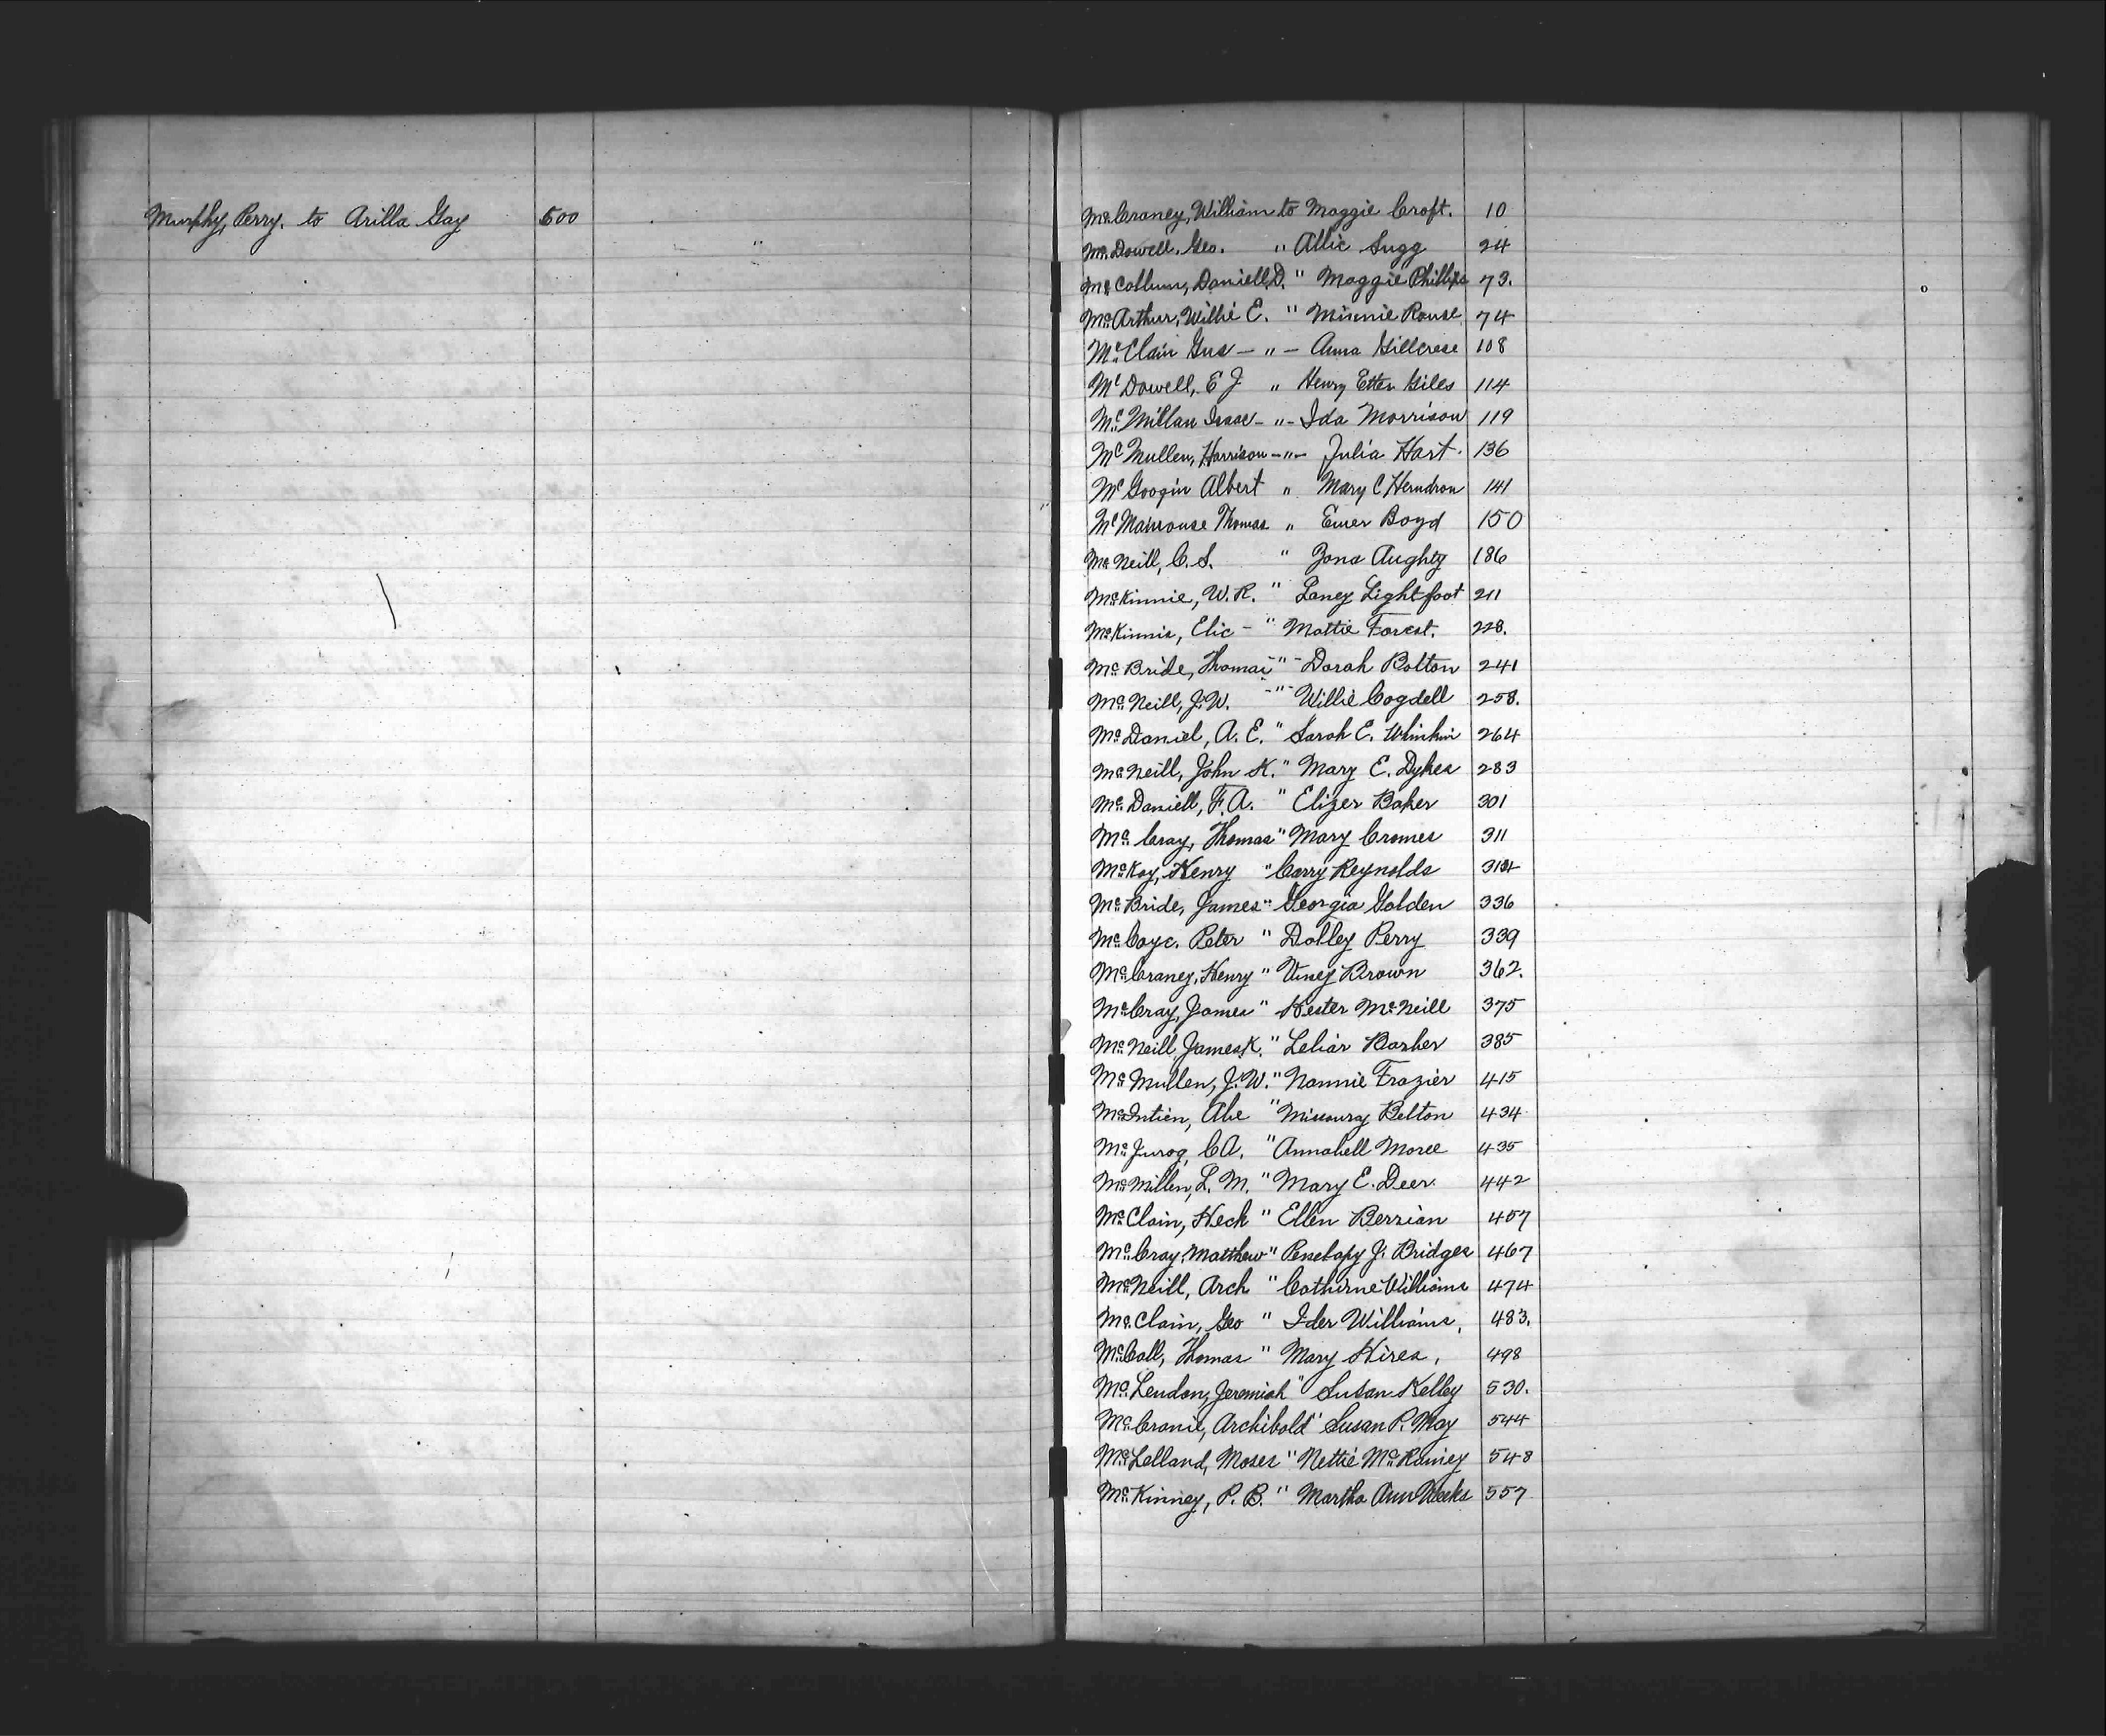 Murphy, Perry. to Arilla Gay 500
McCraney, William to Maggie Croft. 10
McDowell, Geo. " Allie Sugg 24
McCollum, Daniell, D. " Maggie Phillips 73.
McArthur, Willie E. " Minnie Rouse 74
McClain Gus — " — Anna Gillcrese 108
McDowell, E J " Henry Etter Giles 114
McMillan Isaac - " - Ida Morrison 119
McMullen, Harrison - " - Julia Hart. 136
McGoogin Albert " Mary C Herndron 141
Thomas " Emer Boyd 150
McNeill, C. S. " Zona Aughty 186
McKinnie, W. R. " Laney Lightfoot 211
McKinnis, Elic - " Mattie Forest. 228.
McBride, Thomas " Dorah Bolton 241
McNeill, J. W. - " - Willie Cogdell 258.
McDaniel, A. E. " Sarah E. 264
McNeill, John K. " Mary E. Dykes 283
McDaniell, F. A. " Elizer Baker 301
McCray, Thomas " Mary Cromer 311
McKoy, Henry " Carry Reynolds
McBride, James " Georgia Golden 336
McCoye. Peter " Dolley Perry 339
McCraney, Henry " Viney Brown 362.
McCray, James " Hester McNeill 375
McNeill, James K. " Leliar Barber 385
McMullen, J. W. " Nannie Frazier 415
McIntien, Abe " Missoury Belton 434
C A. " Annabell Moree 435
McMillen, L. M. " Mary E. Deer 442
McClain, Heck " Ellen Berrian 457
McCray, Matthew " Penelapy J. Bridges 467
McNeill, Arch " Catherine Williams 474
McClain, Geo " Ider Williams, 483.
McCall, Thomas " Mary Hires, 498
McLendon, Jeremiah " Susan Kelley 530.
McCranie, Archibold " Susan P. May 544
McLelland, Moses " Nettie McRainey 548
McKinney, P. B. " Martha Ann Weeks 557